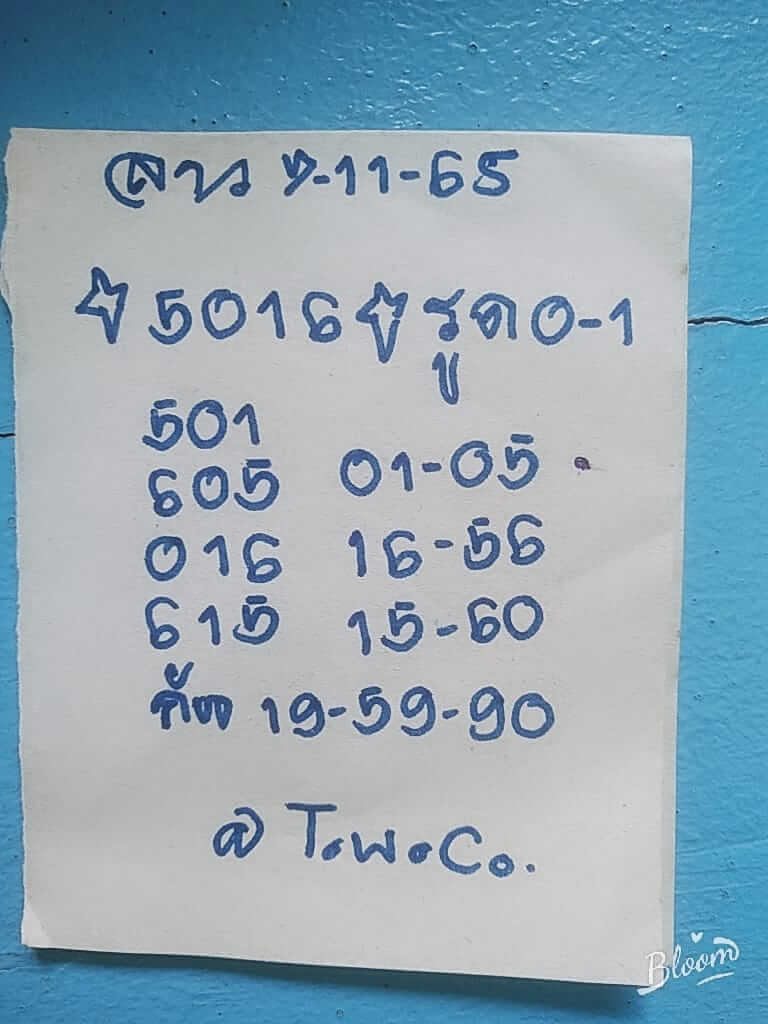 ลาว 7-11-65
5016 รูด 0-1
501
605 01-05
016 16-56
615 15-60
กัน 19-59-90
@ T.W.Co.
Bloom